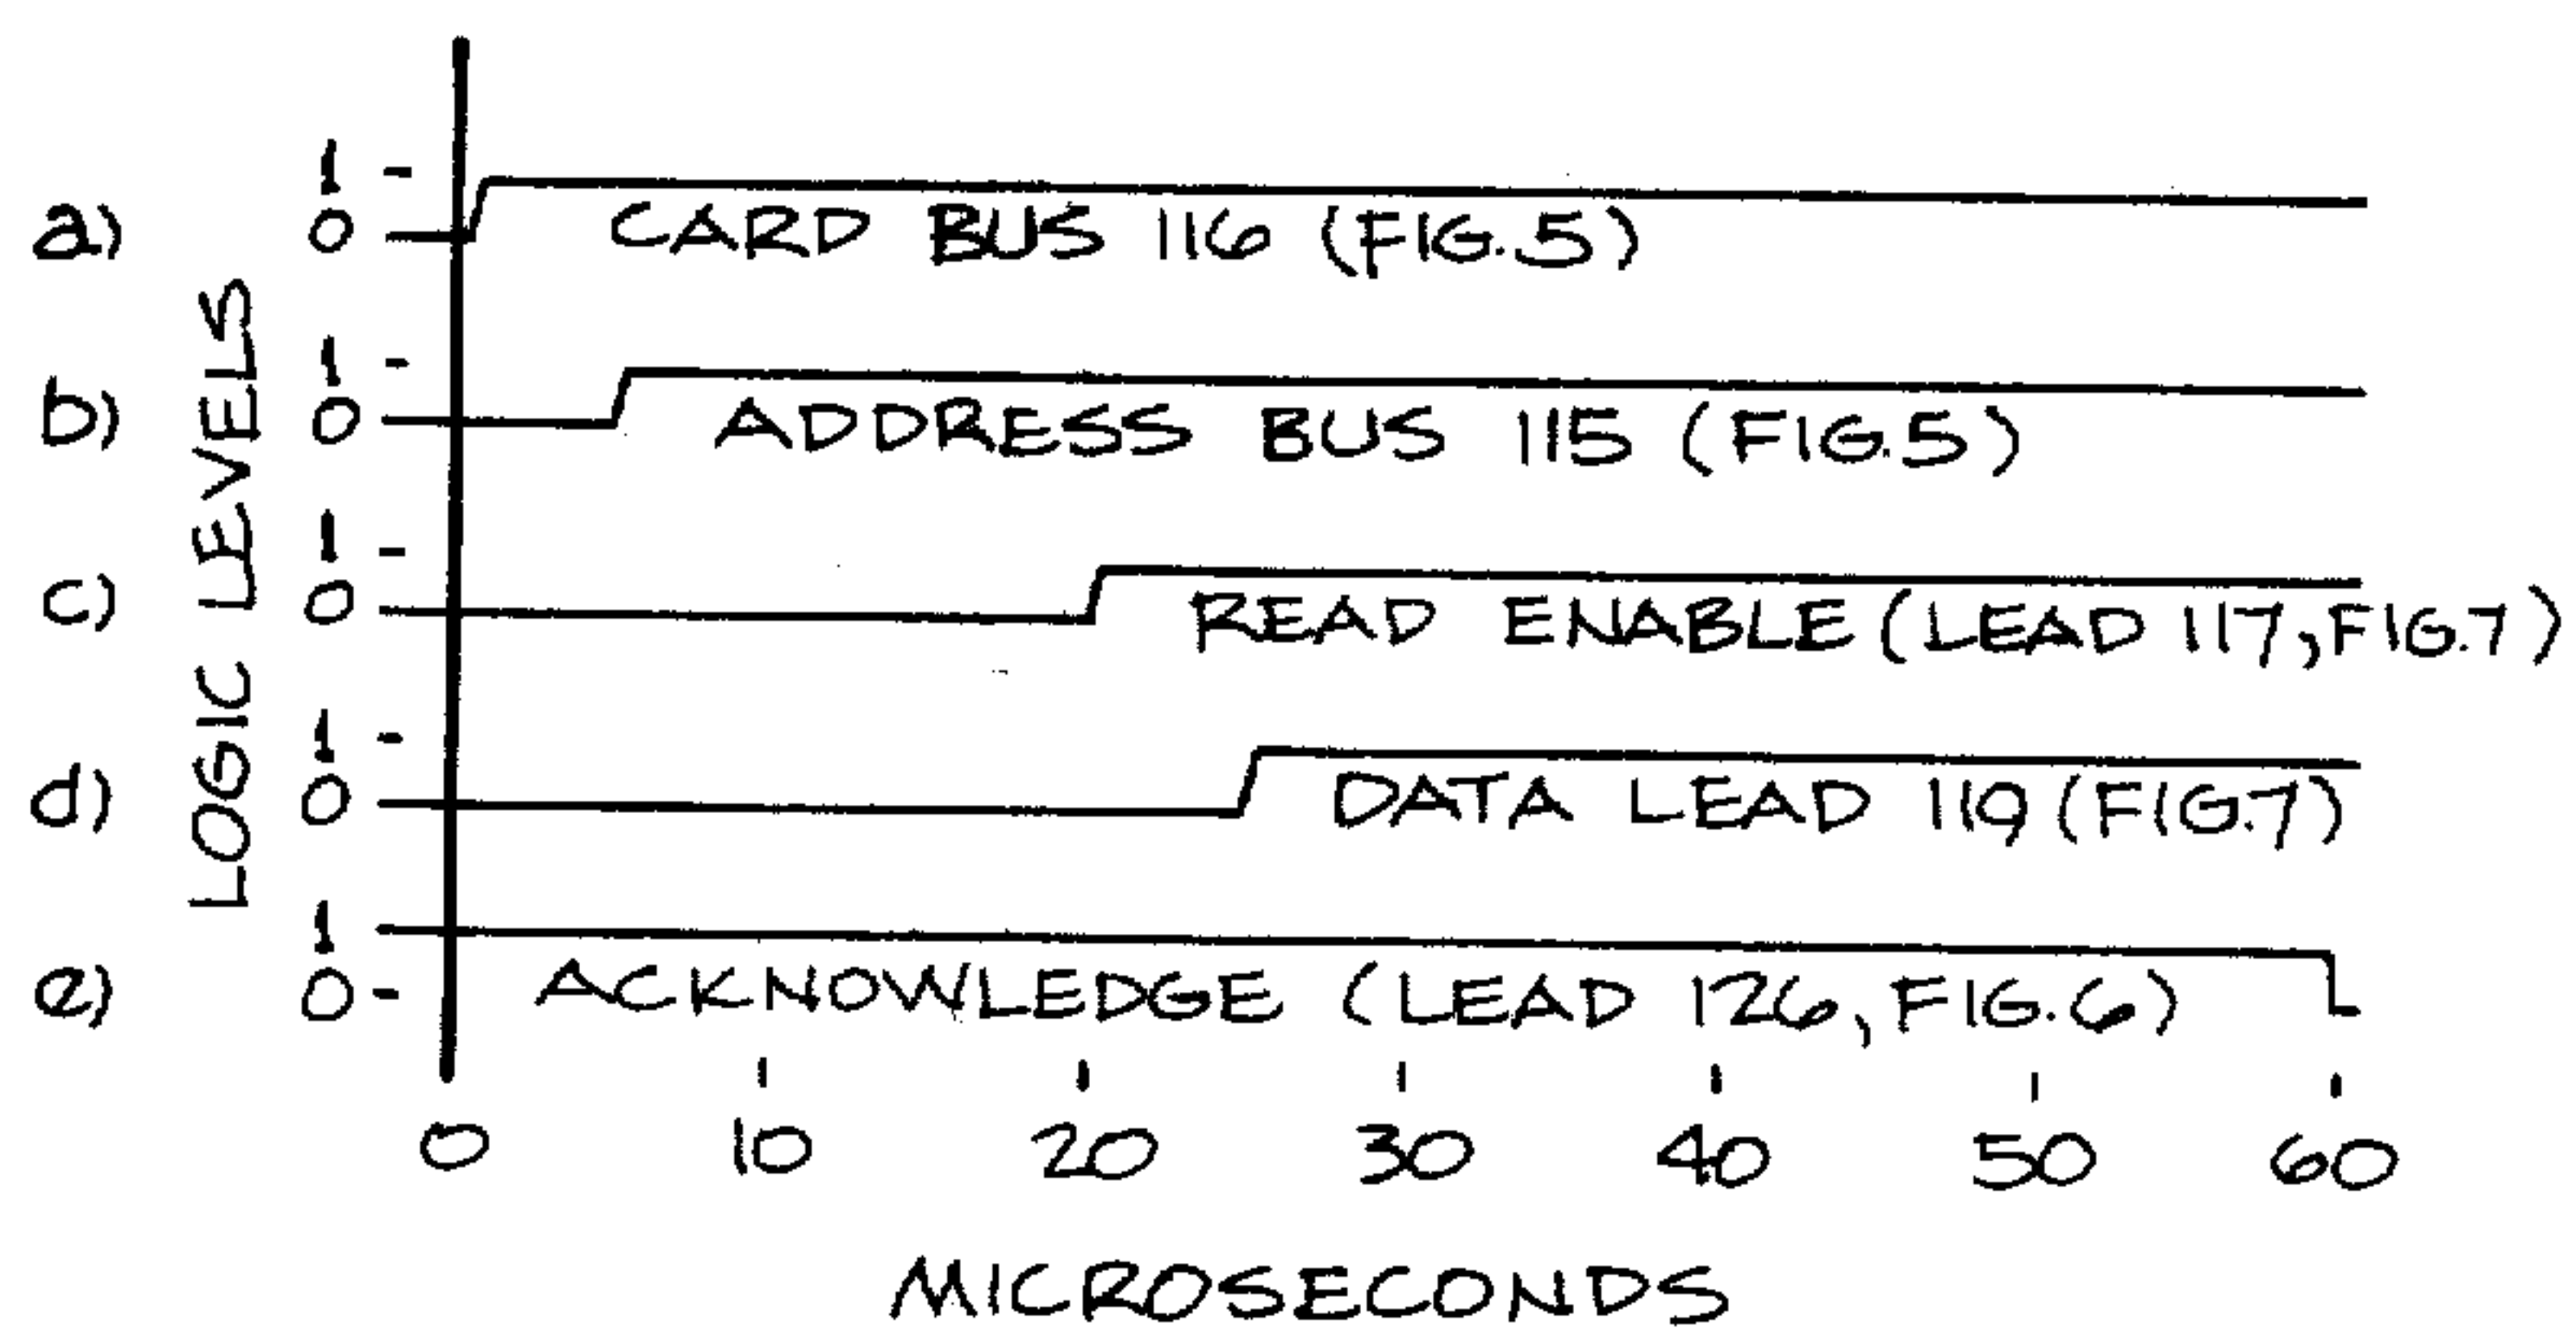 a) 1
0 CARD BUS 116 (FIG. 5)
b) 1
0 ADDRESS BUS 115 (FIG. 5)
c) 1
0 READ ENABLE (LEAD 117, FIG. 7)
d) 1
0 DATA LEAD 119 (FIG. 7)
e) 1
0 ACKNOWLEDGE (LEAD 126, FIG. 6)
LOGIC LEVELS
0 10 20 30 40 50 60
MICROSECONDS